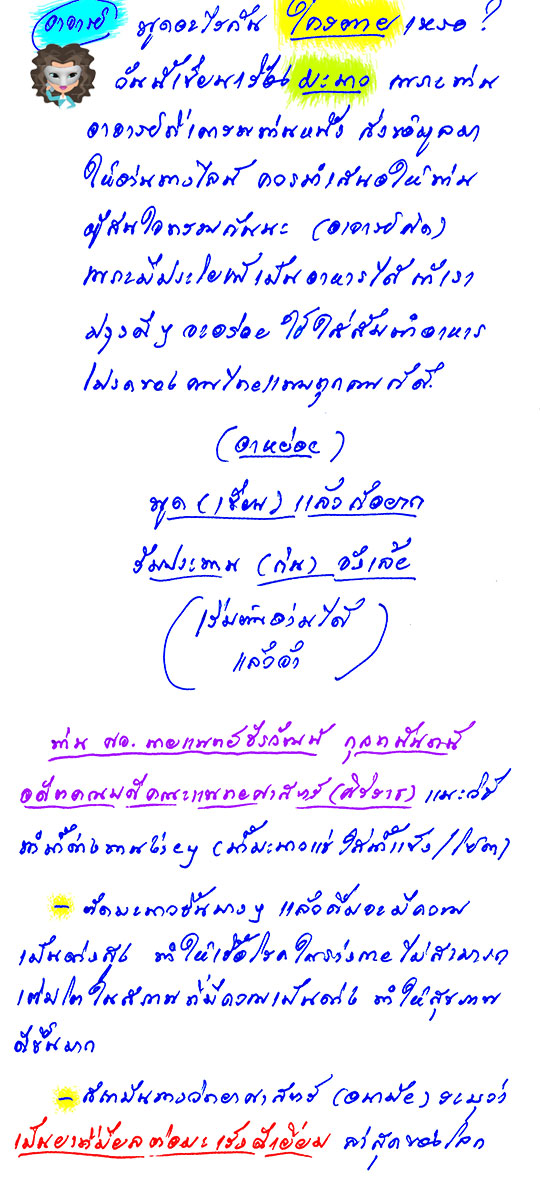 อาจารย์ พูดอะไรกัน ใครตาย เหรอ ?
วันนี้เขียนเรื่อง มะนาว เพราะท่าน
อาจารย์ที่เคารพท่านหนึ่ง ส่งข้อมูลมา
ให้อ่านทางไลน์ ควรนำเสนอให้ท่าน
ผู้สนใจทราบกันนะ (อาจารย์คิด)
เพราะมีประโยชน์ เป็นอาหารได้ ถ้าเรา
ปรุงดีๆ จะอร่อย ใช้ใส่ส้มตำอาหาร
โปรดของคนไทยแทบทุกคนก็ดี.
(อาหย่อย)
พูด (เขียน) แล้วก็อยาก
รับประทาน (กิน) จังเล้ย
(เริ่มต้นอ่านได้
แล้วจ้า)
ท่าน ศจ. นายแพทย์ธีรวัฒน์ กุลทนันทน์
อดีตคณบดีคณะแพทยศาสตร์ (ศิริราช) แนะวิธี
ทำน้ำด่างทานง่ายๆ (น้ำมะนาวแช่ ใส่น้ำแข็ง/โซดา)
- ตัดมะนาวชิ้นบางๆ แล้วดื่มจะมีความ
เป็นด่างสูง ทำให้เชื้อโรคในร่างกายไม่สามารถ
เติบโตในสภาพ ที่มีความเป็นด่าง ทำให้สุขภาพ
ดีขึ้นมาก
- สถาบันทางวิทยาศาสตร์ (อนามัย) ระบุว่า
เป็นยาที่มีผลต่อมะเร็งดีเยี่ยม ล่าสุดของโลก